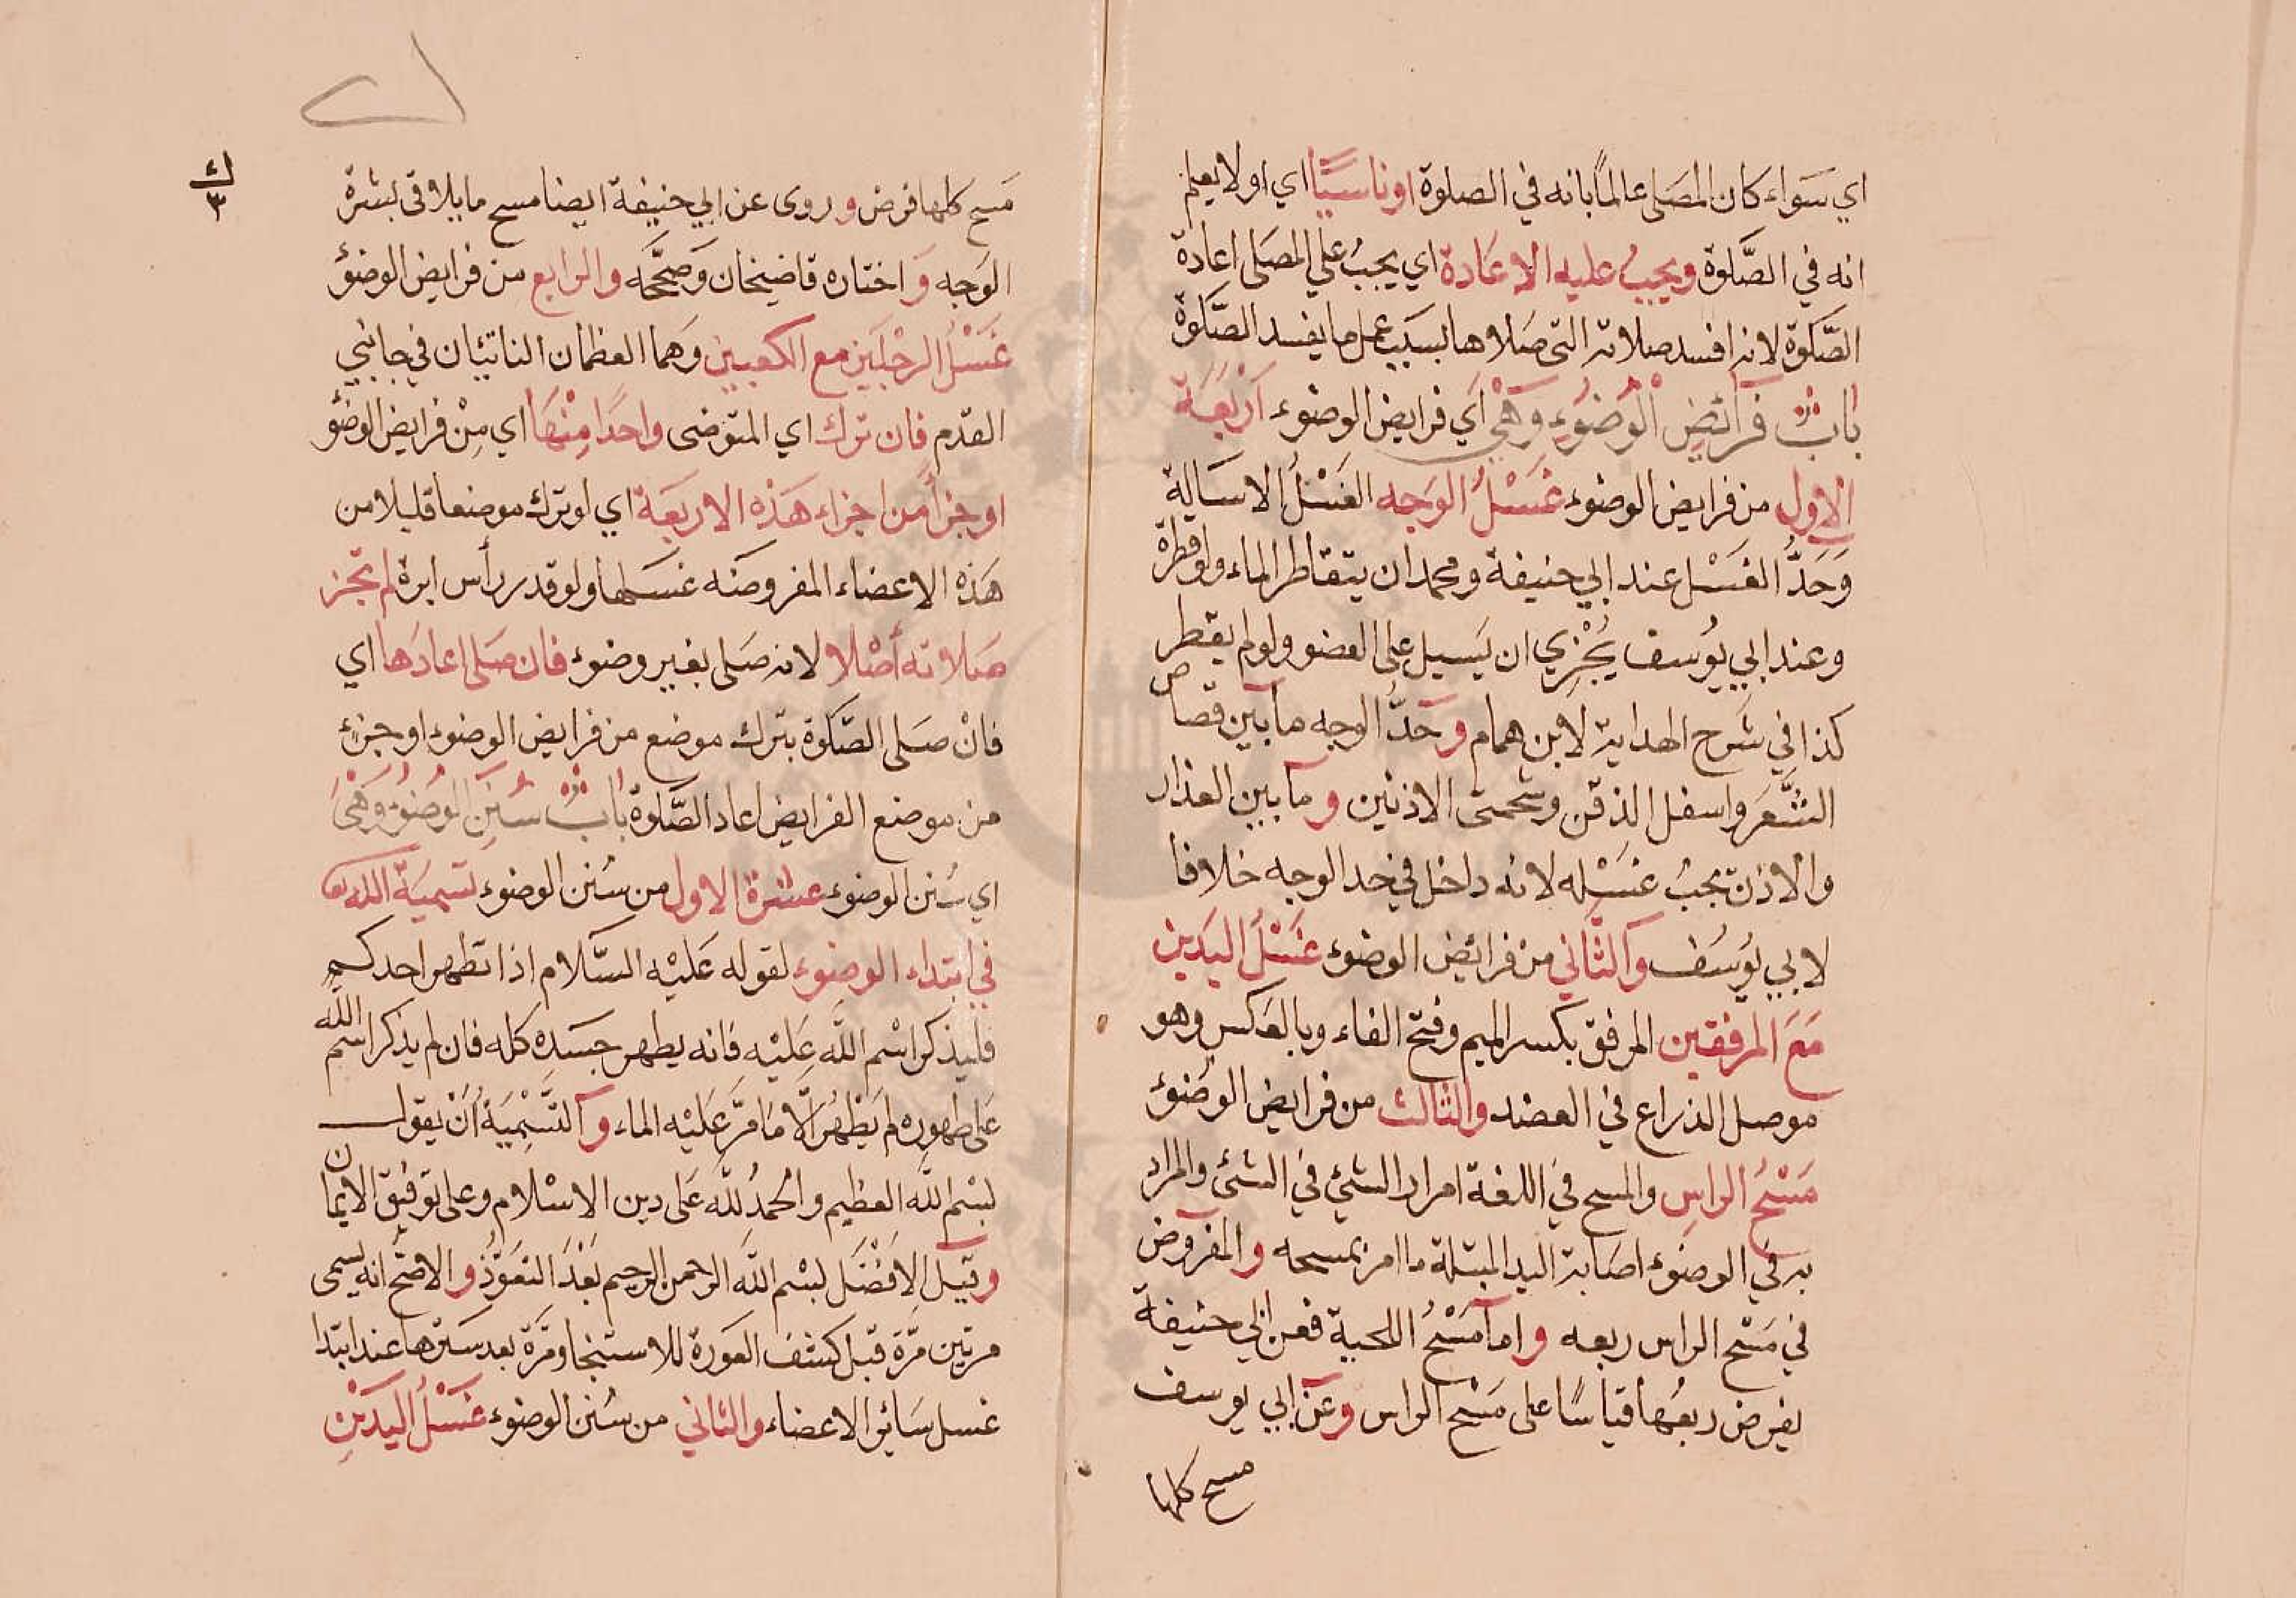 اي سَوَاء كان المصَلى عالمًا بانه في الصلوة اوناسيًا اي او لا يعلم
انه في الصَّلوة ويجبُ عليه الاعَادة اي يجبُ علي المصَلى اعادة
الصَّلوة لانه افسد صلاته التى صَلاها بسَبَب عمل ما يفسد الصَّلوة
بابُ فرآئضِ الوُضوُءِ وَهْيَ اَي فرايض الوضوء اَرْبَعَة
الاول من فرايض الوضوء غَسْلُ الوَجه الغَسْلُ الاسَالة
وَحَدُّ الغَسْل عند ابي حنيفة ومحمد ان يتقاطر الماء ولو قطرة
وعند ابي يوُسف يُجْزِي ان يَسيل على العضو ولو لم يقطر
كذا في شَرح الهداية لابن همام وحَدُّ الوجه مابَين قصاص
الشَّعَر واسفل الذقن وشحمتى الاذنين وما بين العذار
والاذن يجبُ غسْله لانه داخل في حد الوجه خلافا
لابي يُوسُف والثاني من فرائض الوضوء غَسْلُ اليَدين
مَعَ المرفقين المرفق بكسر الميم وفتح الفاء وبالعكس وهو
موصل الذراع في العضد والثالث من فرايض الوضوء
مَسْحُ الراسِ والمسح في اللغة امرار الشئ في الشئ والمراد
به في الوضوء اصَابة اليد المبتلة ما امر بمسحه والمفروض
في مَسْح الراس ربعه واما مَسْحُ اللحية فعن ابي حنيفة
يفرض ربعُها قياسًا على مَسْح الراس وعن ابي يوسف
مسح كلها
ك
٣
مَسح كلها فرض وروى عن ابي حنيفة ايضا مسح ما يلاقى بشرة
الوَجه وَاختاره قاضيخان وَصَحَّحَه والرابع من فرايض الوضوء
غَسْلُ الرجْلَين مع الكعبين وهما العظمان الناتئان في جانبي
القدم فان ترك اي المتوضى واحدًا مِنْهَا اي مِنْ فرايض الوضوء
او جزأ من اجزاء هَذه الاربعَة اي لو ترك موضعا قليلا من
هَذه الاعضاء المفروضَة غسَلها ولو قدر رأس ابرة لم تجز
صَلاته أصْلا لانه صَلى بغير وضوء فان صَلى اعادَها اي
فانْ صَلى الصَّلوة بترك موضع من فرايض الوضوء او جزء
من موضع الفرايض اعاد الصَّلوة بابُ سُنَنِ الوُضوُء وَهْيَ
اي سُنن الوضوء عشرة الاول من سُنن الوضوء تسميَة الله تعا
في ابتداء الوضوء لقوله عَليْه السَّلام اذا تطهر احدكم
فليذكر اسْم اللَّه عَليْه فانه يطهر جسَده كله فان لم يذكر اسم الله
عَلى طهوره لم يَطهُر الَّا مَا مَرَّ عَليْه الماء والتَّسْمِيَةُ اَنْ يقول
بسْم اللَّه العظيم والحمدُ للَّه عَلى دين الاسْلام وعلى توفيق الايمان
وقيل الافضَل بسْم اللَّه الرحمن الرحيم بَعْدَ التعَوُّذُ والاصَح انه يسمى
مرتين مَرَّة قبل كشف العَورة للاستنجا ومَرَّة بعد سَترها عند ابتدا
غسل سَائر الاعضاء والثاني من سُنن الوضوء غَسْلُ اليَدَيْنِ